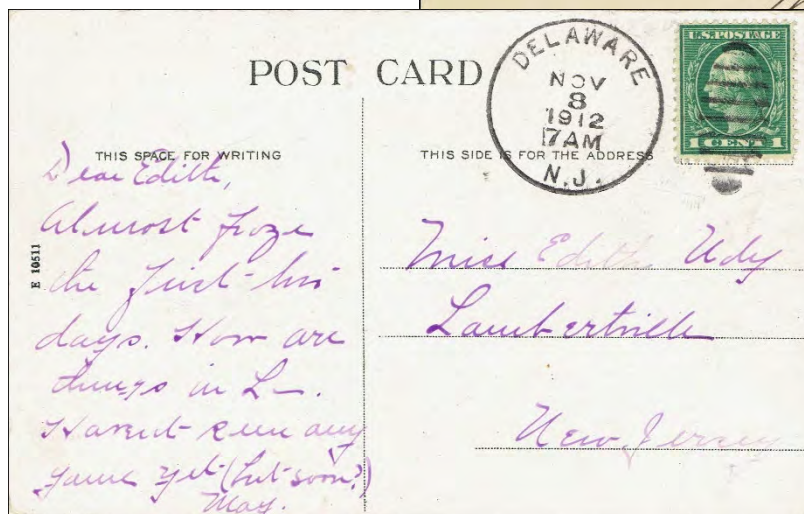 POST CARD
DELAWARE
NOV
8
1912
7AM
N.J.
U.S. POSTAGE
1 CENT 1
THIS SPACE FOR WRITING
THIS SIDE IS FOR THE ADDRESS
E 10511
Dear Edith,
Almost froze
the first
days. How are
things in L—.
Havent seen any
game yet (but soon?)
May.
Miss Edith Udy
Lambertville
New Jersey